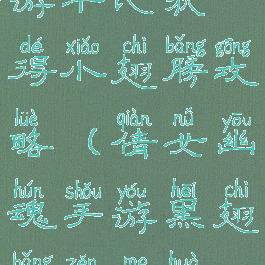 游半代款
dé xiǎo chì bǎng gōng
得小翅膀攻
lüè qiàn nǚ yōu
略（倩女幽
hún shǒu yóu hēi chì
魂手游黑翅
bǎng zěn me huò